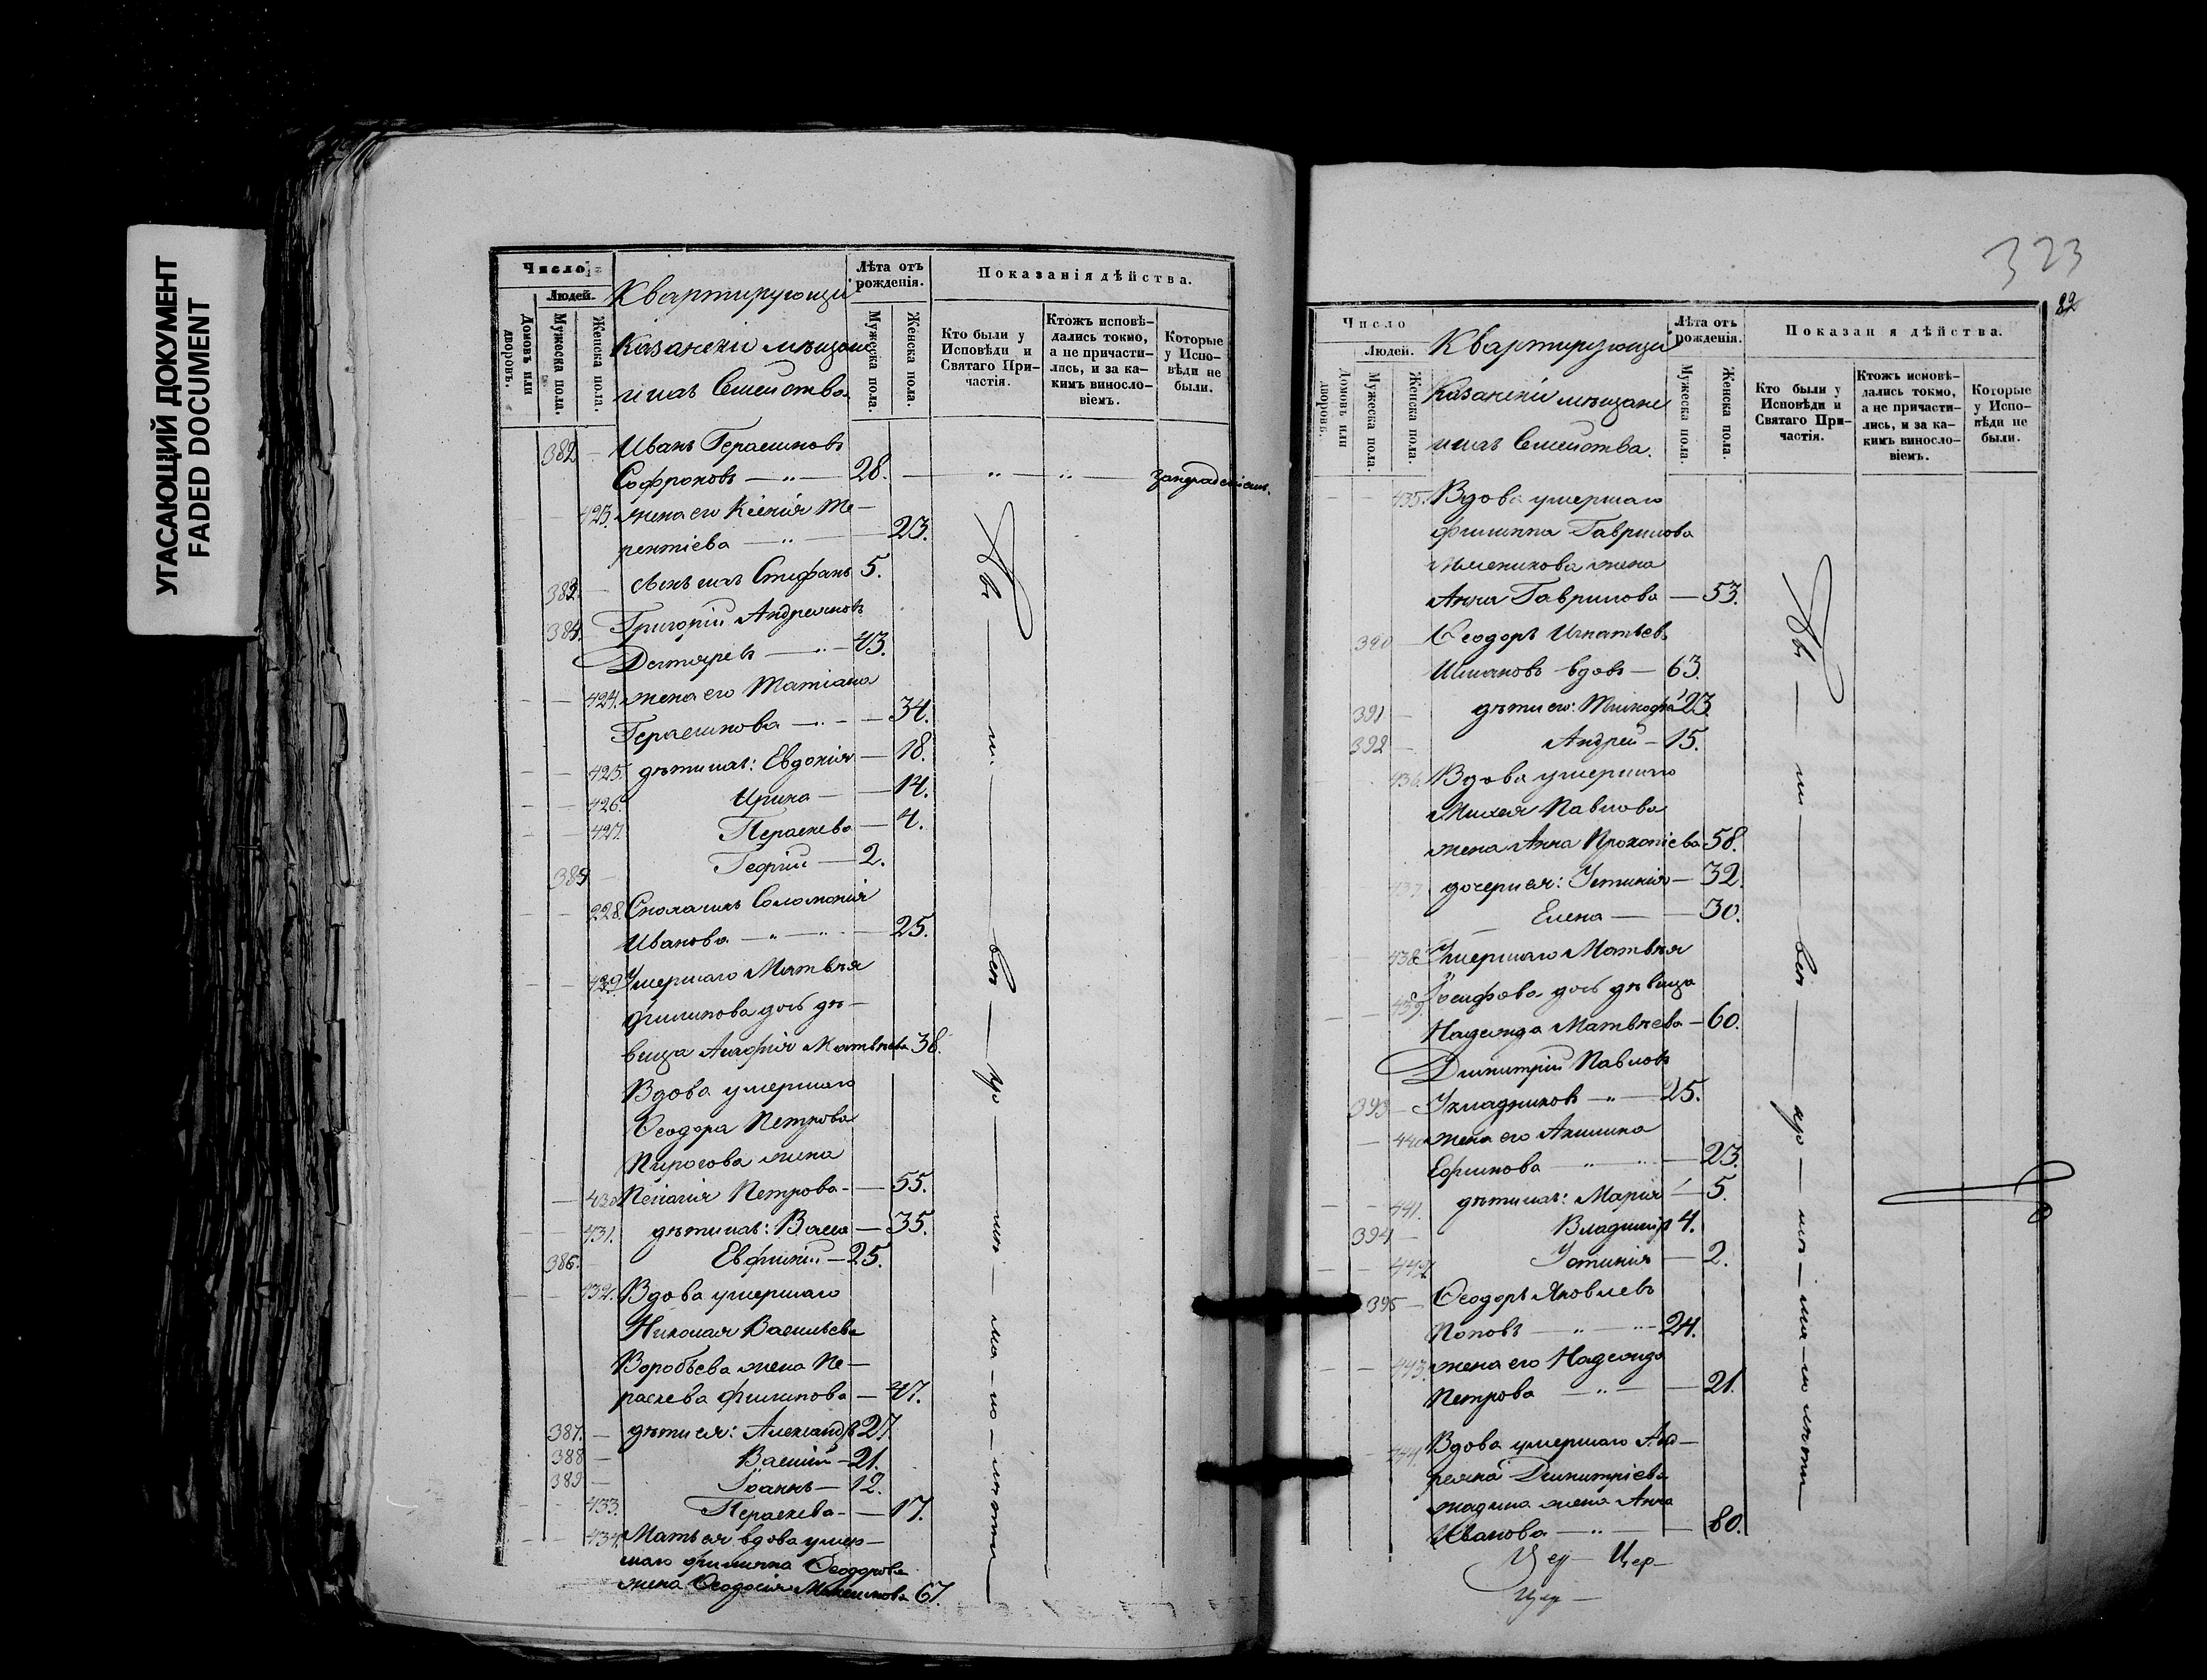 УГАСАЮЩИЙ ДОКУМЕНТ
FADED DOCUMENT
Число
Людей.
Домовъ или дворовъ.
Мужеска пола.
Женска пола.
Квартирующіи
Казанскіи мѣщане
и ихъ Семейства.
Лѣта отъ рожденія.
Мужеска пола.
Женска пола.
Показанія дѣйства.
Кто были у Исповѣди и Святаго Причастія.
Ктожъ исповѣдались токмо, а не причастились, и за какимъ винословіемъ.
Которые у Исповѣди не были.
382 — Иванъ Герасимовъ
Софроновъ — „ — 28. — „ — „ —
423. жена его Ксенія Те—
рентіева — „ — 23.
383. — сынъ ихъ Стефанъ 5.
384. — Григорій Андреяновъ
Дегтяревъ — „ — 43.
424. жена его Татіана
Герасимова — „ — 34.
425. дѣти ихъ: Евдокія — 18.
426. Ирина — 14.
427. Параскева — 4.
385 — Георгій — 2.
228. Соломонія
Иванова — „ — „ — 25.
429. Умершаго Матвѣя
Филипова дочь дѣ—
вица Агафія Матвѣева 38.
Вдова умершаго
Ѳеодора Петрова
Пирогова жена
430 Пелагія Петрова — 55.
431. дѣти ихъ: Васса — 35.
386. Евфимій — 25.
432. Вдова умершаго
Николая Васильева
Воробьева жена Па—
раскева Филипова — 47.
387. — дѣти ея: Александръ 27
388 — Василій — 21.
389 — Іоаннъ — 12.
433. Параскева — 17.
434. Мать ея вдова умер—
шаго Филиппа Ѳеодорова
жена Ѳеодосія Максимова 67.
Явились
323
82
Число
Людей.
Домовъ или дворовъ.
Мужеска пола.
Женска пола.
Квартирующіи
Казанскіи мѣщане
и ихъ Семейства.
Лѣта отъ рожденія.
Мужеска пола.
Женска пола.
Показан я дѣйства.
Кто были у Исповѣди и Святаго Причастія.
Ктожъ исповѣдались токмо, а не причастились, и за какимъ винословіемъ.
Которые у Исповѣди не были.
435. Вдова умершаго
Филиппа Гаврилова
жена
Анна Гаврилова — 53.
390 — Ѳеодоръ Игнатьевъ
вдовъ — 63.
391 — дѣти его: 23.
392 — Андрей — 15.
436. Вдова умершаго
Михея Павлова
жена Анна Прокопіева 58.
437. дочери ея: Устинія — 32.
Елена — 30.
438 Умершаго Матвѣя
439. Іосифова дочь дѣвица
Надежда Матвѣева — 60.
Димитрій Павловъ
393 — Укладниковъ — „ — 25.
440 жена его Акилина
Ефимова — „ — 23.
441. дѣти ихъ: Марія — 5.
394 — Владимір 4.
442 Устинія — 2.
395 — Ѳеодоръ Яковлевъ
Поповъ — „ — 24.
443. жена его Надежда
Петрова — „ — 21.
444. Вдова умершаго Анд—
реяна Димитріева
жена Анна
Иванова — „ — 80.
Цер— Цер—